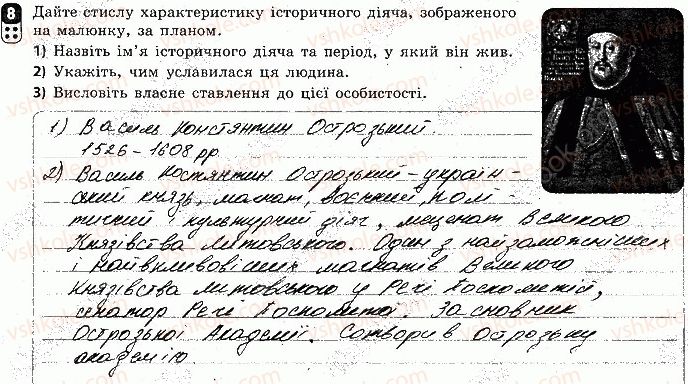 8 Дайте стислу характеристику історичного діяча, зображеного
на малюнку, за планом.
1) Назвіть ім’я історичного діяча та період, у який він жив.
2) Укажіть, чим уславилася ця людина.
3) Висловіть власне ставлення до цієї особистості.
1) Василь Костянтин Острозький.
1526-1608 рр
2) Василь Костянтин Острозький - україн-
ський князь, магнат, воєнний, полі-
тичний і культурний діяч, меценат Великого
Князівства Литовського. Один з найзаможніших
і найвпливовіших магнатів Великого
Князівства Литовського у Речі Посполитій,
сенатор Речі Посполитої. Засновник
Острозької Академії. Сотворив Острозьку
академію